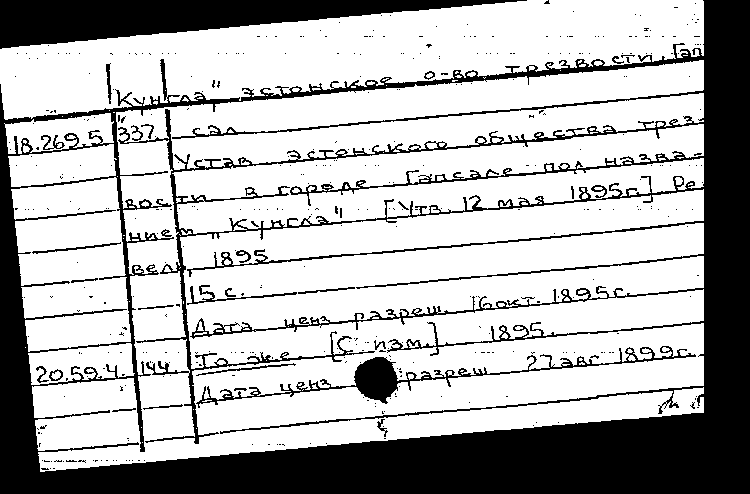 „Кунгла", эстонское о-во трезвости, Гап
18.269.5 337. сал
Устав эстонского общества трез-
вости в городе Гапсале под назва-
нием „Кунгла" [Утв. 12 мая 1895г.] Ре
вель, 1895.
15 с.
Дата ценз. разреш. 16 окт. 1895г.
20.59.4. 144. То же. [С изм.]. 1895.
Дата ценз. разреш 27 авг 1899г.